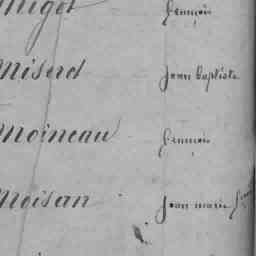 Migot françois
Miserd Jean baptiste
Moineau françois
Moisan Jean marie